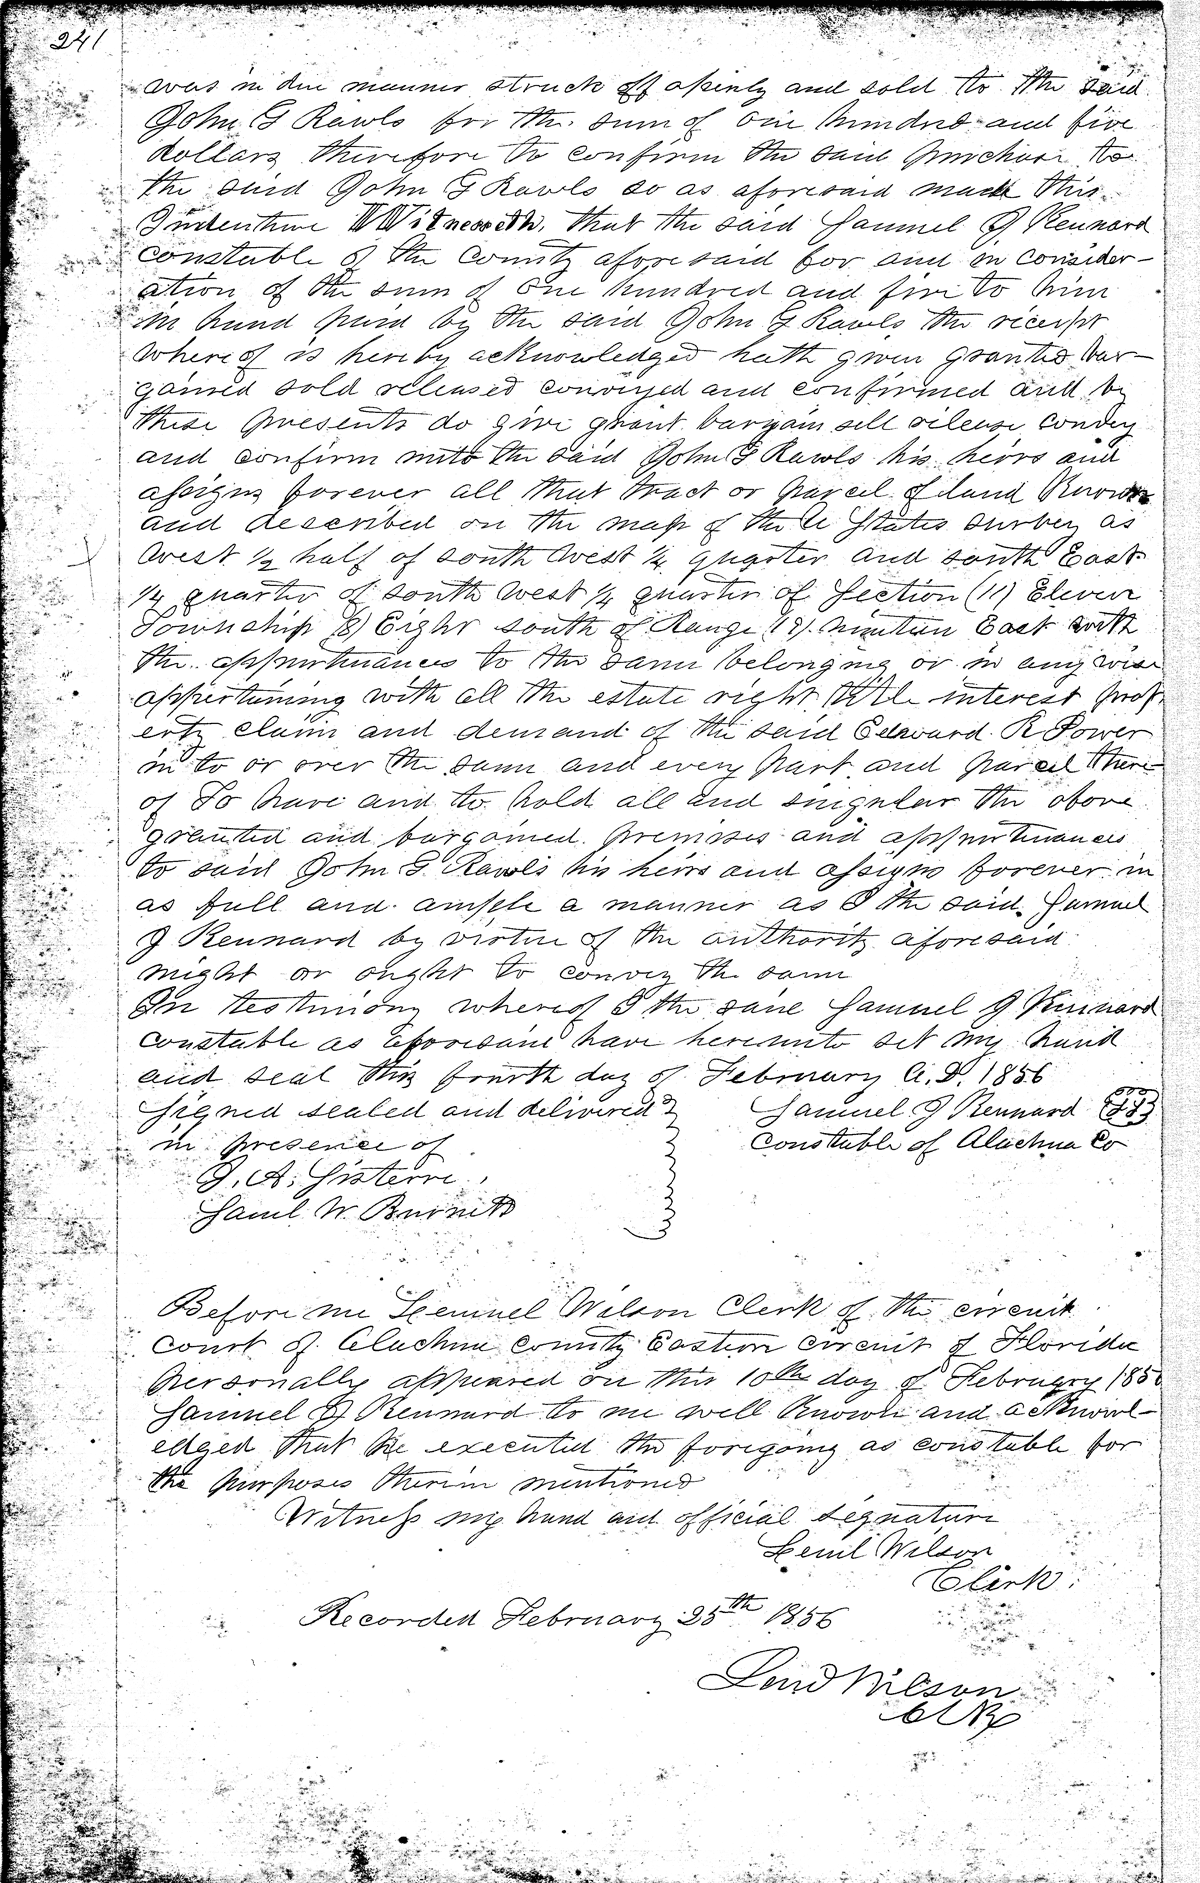 241
was in due manner struck off openly and sold to the said
John G Rawls for the sum of one hundred and five
dollars therefore to confirm the said purchase to
the said John G Rawls so as aforesaid made this
Indenture Witnesseth. that the said Samuel J Kennard
constable of the County aforesaid for and in consider-
ation of the sum of one hundred and five to him
in hand paid by the said John G Rawls the receipt
whereof is hereby acknowledged hath given granted bar-
gained sold released conveyed and confirmed and by
these presents do give grant bargain sell release convey
and confirm unto the said John G Rawls his heirs and
assigns forever all that tract or parcel of land Known
and described on the map of the U States survey as
West ½ half of south West ¼ quarter and south East
¼ quarter of south West ¼ quarter of Section (11) Eleven
Township (8) Eight south of Range (19) nineteen East with
the appurtenances to the same belonging or in any wise
appertaining with all the estate right title interest prop
erty claim and demand of the said Edward R Power
in to or over the same and every part and parcel there
of To have and to hold all and singular the above
granted and bargained premises and appurtenances
to said John G Rawls his heirs and assigns forever in
as full and ample a manner as I the said Samuel
J Kennard by virtue of the authority aforesaid
might or ought to convey the same
In testimony whereof I the said Samuel J Kennard
constable as aforesaid have hereunto set my hand
and seal this fourth day of February A.D. 1856
Signed sealed and delivered Samuel J Kennard
in presence of Constable of Alachua Co
J. A. Sisterre
Saml W. Burnett
Before me Lemuel Wilson Clerk of the circuit
court of Alachua county Eastern circuit of Florida
personally appeared on this 10th day of February 1856
Samuel J Kennard to me well Known and acknowl-
edged that he executed the foregoing as constable for
the purposes therein mentioned
Witness my hand and official signature
Leml Wilson
Clerk.
Recorded February 25th 1856
Leml Wilson
Clk